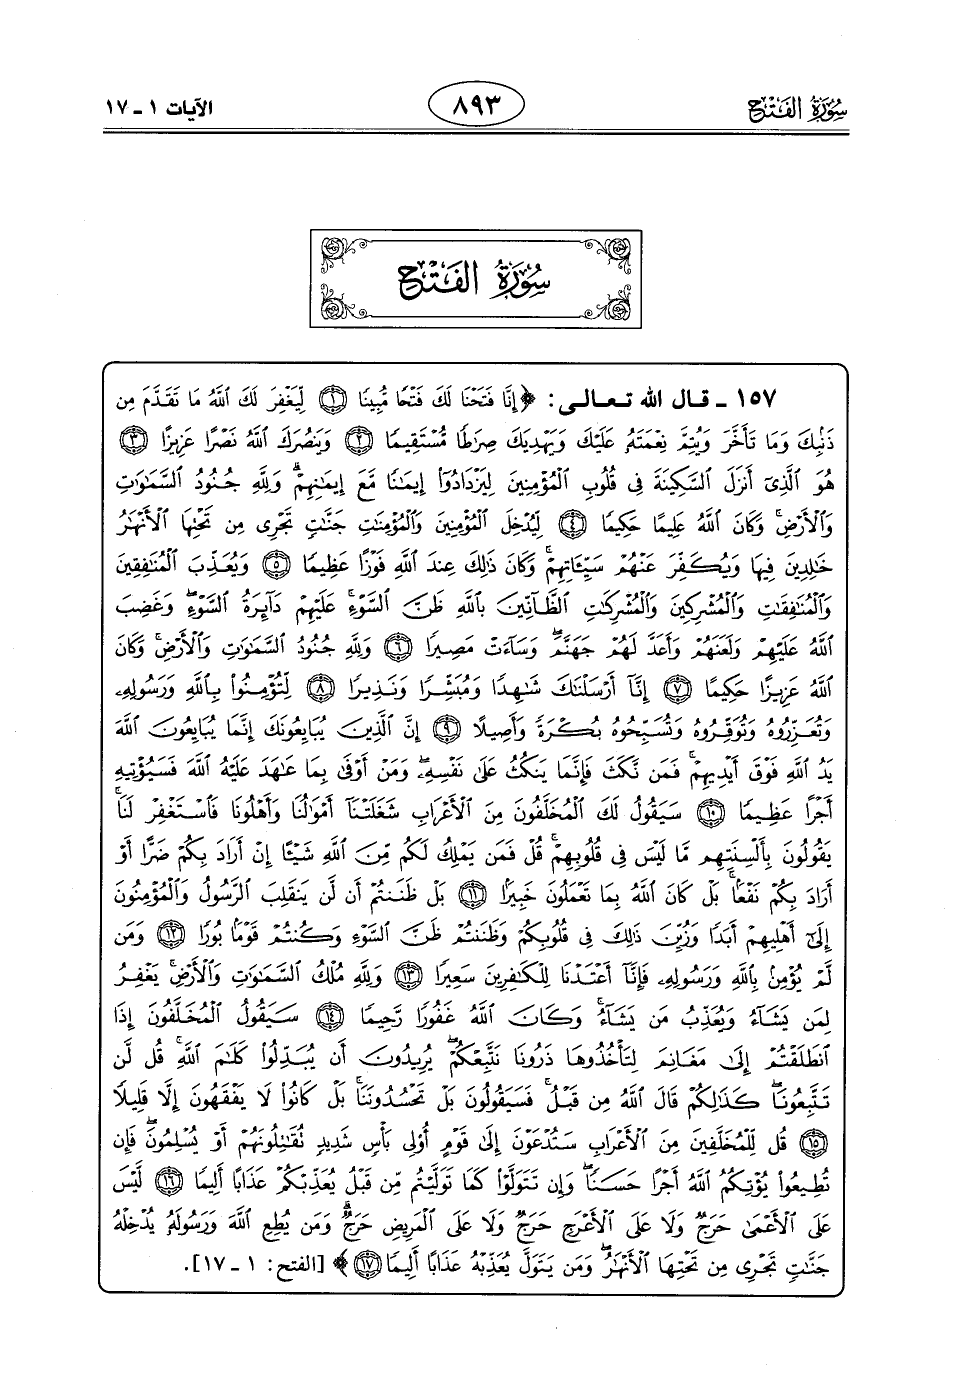 سُورَةُ الفَتْح
٨٩٣
الآيات ١ ـ ١٧
سُورَةُ الفَتْح
١٥٧ ـ قال الله تعالى: ﴿إِنَّا فَتَحْنَا لَكَ فَتْحًا مُّبِينًا ۝١ لِّيَغْفِرَ لَكَ ٱللَّهُ مَا تَقَدَّمَ مِن
ذَنۢبِكَ وَمَا تَأَخَّرَ وَيُتِمَّ نِعْمَتَهُۥ عَلَيْكَ وَيَهْدِيَكَ صِرَٰطًا مُّسْتَقِيمًا ۝٢ وَيَنصُرَكَ ٱللَّهُ نَصْرًا عَزِيزًا ۝٣
هُوَ ٱلَّذِىٓ أَنزَلَ ٱلسَّكِينَةَ فِى قُلُوبِ ٱلْمُؤْمِنِينَ لِيَزْدَادُوٓا۟ إِيمَٰنًا مَّعَ إِيمَٰنِهِمْ ۗ وَلِلَّهِ جُنُودُ ٱلسَّمَٰوَٰتِ
وَٱلْأَرْضِ ۚ وَكَانَ ٱللَّهُ عَلِيمًا حَكِيمًا ۝٤ لِّيُدْخِلَ ٱلْمُؤْمِنِينَ وَٱلْمُؤْمِنَٰتِ جَنَّٰتٍ تَجْرِى مِن تَحْتِهَا ٱلْأَنْهَٰرُ
خَٰلِدِينَ فِيهَا وَيُكَفِّرَ عَنْهُمْ سَيِّـَٔاتِهِمْ ۚ وَكَانَ ذَٰلِكَ عِندَ ٱللَّهِ فَوْزًا عَظِيمًا ۝٥ وَيُعَذِّبَ ٱلْمُنَٰفِقِينَ
وَٱلْمُنَٰفِقَٰتِ وَٱلْمُشْرِكِينَ وَٱلْمُشْرِكَٰتِ ٱلظَّآنِّينَ بِٱللَّهِ ظَنَّ ٱلسَّوْءِ ۚ عَلَيْهِمْ دَآئِرَةُ ٱلسَّوْءِ ۖ وَغَضِبَ
ٱللَّهُ عَلَيْهِمْ وَلَعَنَهُمْ وَأَعَدَّ لَهُمْ جَهَنَّمَ ۖ وَسَآءَتْ مَصِيرًا ۝٦ وَلِلَّهِ جُنُودُ ٱلسَّمَٰوَٰتِ وَٱلْأَرْضِ ۚ وَكَانَ
ٱللَّهُ عَزِيزًا حَكِيمًا ۝٧ إِنَّآ أَرْسَلْنَٰكَ شَٰهِدًا وَمُبَشِّرًا وَنَذِيرًا ۝٨ لِّتُؤْمِنُوا۟ بِٱللَّهِ وَرَسُولِهِۦ
وَتُعَزِّرُوهُ وَتُوَقِّرُوهُ وَتُسَبِّحُوهُ بُكْرَةً وَأَصِيلًا ۝٩ إِنَّ ٱلَّذِينَ يُبَايِعُونَكَ إِنَّمَا يُبَايِعُونَ ٱللَّهَ
يَدُ ٱللَّهِ فَوْقَ أَيْدِيهِمْ ۚ فَمَن نَّكَثَ فَإِنَّمَا يَنكُثُ عَلَىٰ نَفْسِهِۦ ۖ وَمَنْ أَوْفَىٰ بِمَا عَٰهَدَ عَلَيْهُ ٱللَّهَ فَسَيُؤْتِيهِ
أَجْرًا عَظِيمًا ۝١٠ سَيَقُولُ لَكَ ٱلْمُخَلَّفُونَ مِنَ ٱلْأَعْرَابِ شَغَلَتْنَآ أَمْوَٰلُنَا وَأَهْلُونَا فَٱسْتَغْفِرْ لَنَا ۚ
يَقُولُونَ بِأَلْسِنَتِهِم مَّا لَيْسَ فِى قُلُوبِهِمْ ۚ قُلْ فَمَن يَمْلِكُ لَكُم مِّنَ ٱللَّهِ شَيْـًٔا إِنْ أَرَادَ بِكُمْ ضَرًّا أَوْ
أَرَادَ بِكُمْ نَفْعًۢا ۚ بَلْ كَانَ ٱللَّهُ بِمَا تَعْمَلُونَ خَبِيرًۢا ۝١١ بَلْ ظَنَنتُمْ أَن لَّن يَنقَلِبَ ٱلرَّسُولُ وَٱلْمُؤْمِنُونَ
إِلَىٰٓ أَهْلِيهِمْ أَبَدًا وَزُيِّنَ ذَٰلِكَ فِى قُلُوبِكُمْ وَظَنَنتُمْ ظَنَّ ٱلسَّوْءِ وَكُنتُمْ قَوْمًۢا بُورًا ۝١٢ وَمَن
لَّمْ يُؤْمِنۢ بِٱللَّهِ وَرَسُولِهِۦ فَإِنَّآ أَعْتَدْنَا لِلْكَٰفِرِينَ سَعِيرًا ۝١٣ وَلِلَّهِ مُلْكُ ٱلسَّمَٰوَٰتِ وَٱلْأَرْضِ ۚ يَغْفِرُ
لِمَن يَشَآءُ وَيُعَذِّبُ مَن يَشَآءُ ۚ وَكَانَ ٱللَّهُ غَفُورًا رَّحِيمًا ۝١٤ سَيَقُولُ ٱلْمُخَلَّفُونَ إِذَا
ٱنطَلَقْتُمْ إِلَىٰ مَغَانِمَ لِتَأْخُذُوهَا ذَرُونَا نَتَّبِعْكُمْ ۖ يُرِيدُونَ أَن يُبَدِّلُوا۟ كَلَٰمَ ٱللَّهِ ۚ قُل لَّن
تَتَّبِعُونَا ۖ كَذَٰلِكُمْ قَالَ ٱللَّهُ مِن قَبْلُ ۖ فَسَيَقُولُونَ بَلْ تَحْسُدُونَنَا ۚ بَلْ كَانُوا۟ لَا يَفْقَهُونَ إِلَّا قَلِيلًا
۝١٥ قُل لِّلْمُخَلَّفِينَ مِنَ ٱلْأَعْرَابِ سَتُدْعَوْنَ إِلَىٰ قَوْمٍ أُو۟لِى بَأْسٍ شَدِيدٍ تُقَٰتِلُونَهُمْ أَوْ يُسْلِمُونَ ۖ فَإِن
تُطِيعُوا۟ يُؤْتِكُمُ ٱللَّهُ أَجْرًا حَسَنًا ۖ وَإِن تَتَوَلَّوْا۟ كَمَا تَوَلَّيْتُم مِّن قَبْلُ يُعَذِّبْكُمْ عَذَابًا أَلِيمًا ۝١٦ لَّيْسَ
عَلَى ٱلْأَعْمَىٰ حَرَجٌ وَلَا عَلَى ٱلْأَعْرَجِ حَرَجٌ وَلَا عَلَى ٱلْمَرِيضِ حَرَجٌ ۗ وَمَن يُطِعِ ٱللَّهَ وَرَسُولَهُۥ يُدْخِلْهُ
جَنَّٰتٍ تَجْرِى مِن تَحْتِهَا ٱلْأَنْهَٰرُ ۖ وَمَن يَتَوَلَّ يُعَذِّبْهُ عَذَابًا أَلِيمًا ۝١٧﴾ [الفتح: ١ ـ ١٧].